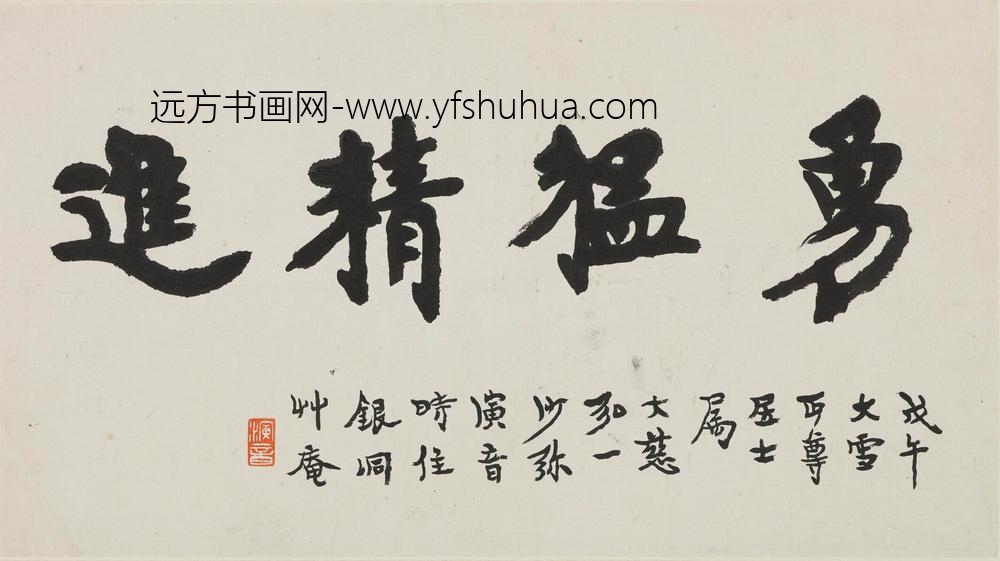 远方书画网-www.yfshuhua.com
勇猛精進
戊午
大雪
丏尊
居士
属
大慈
弘一
沙弥
演音
時住
銀洞
艸庵
演音